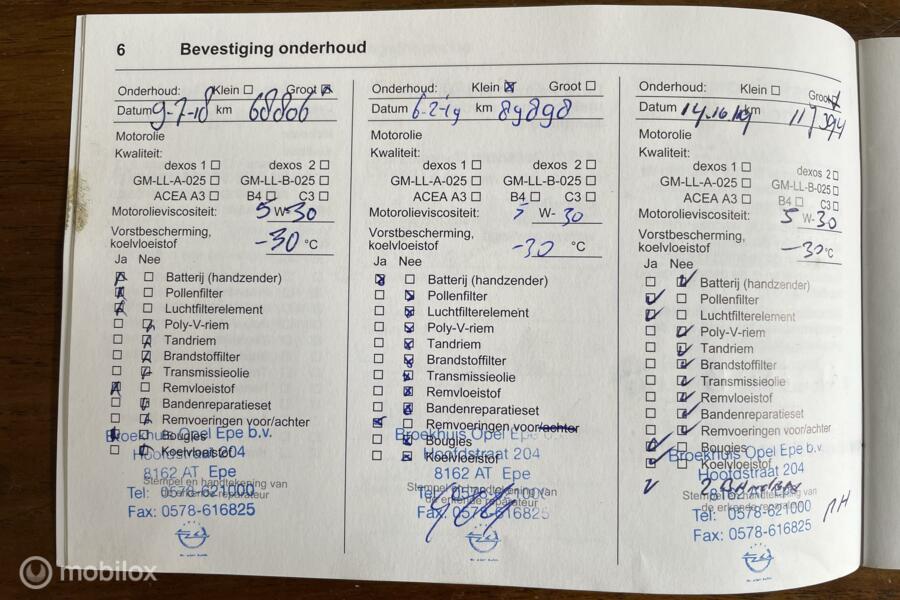 6 Bevestiging onderhoud
Onderhoud: Klein Groot
Datum 9-7-18 km 68806
Motorolie
Kwaliteit:
dexos 1 dexos 2
GM-LL-A-025 GM-LL-B-025
ACEA A3 B4 C3
Motorolieviscositeit: 5 W-30
Vorstbescherming,
koelvloeistof -30 °C
Ja Nee
Batterij (handzender)
Pollenfilter
Luchtfilterelement
Poly-V-riem
Tandriem
Brandstoffilter
Transmissieolie
Remvloeistof
Bandenreparatieset
Remvoeringen voor/achter
Broekhuis Opel Epe b.v.
Bougies
Koelvloeistof
Hoofdstraat 204
8162 AT Epe
Stempel en handtekening van
de erkende reparateur
Tel: 0578-621000
Fax: 0578-616825
Onderhoud: Klein Groot
Datum 6-2-19 km 89898
Motorolie
Kwaliteit:
dexos 1 dexos 2
GM-LL-A-025 GM-LL-B-025
ACEA A3 B4 C3
Motorolieviscositeit: 5 W-30
Vorstbescherming,
koelvloeistof -30 °C
Ja Nee
Batterij (handzender)
Pollenfilter
Luchtfilterelement
Poly-V-riem
Tandriem
Brandstoffilter
Transmissieolie
Remvloeistof
Bandenreparatieset
Remvoeringen voor/achter
Broekhuis Opel Epe
Bougies
Koelvloeistof
Hoofdstraat 204
8162 AT Epe
Stempel en handtekening van
de erkende reparateur
Tel: 0578-621000
Fax: 0578-616825
Onderhoud: Klein Groot
Datum km
Motorolie
Kwaliteit:
dexos 1 dexos 2
GM-LL-A-025 GM-LL-B-025
ACEA A3 B4 C3
Motorolieviscositeit: 5 W-30
Vorstbescherming,
koelvloeistof -30 °C
Ja Nee
Batterij (handzender)
Pollenfilter
Luchtfilterelement
Poly-V-riem
Tandriem
Brandstoffilter
Transmissieolie
Remvloeistof
Bandenreparatieset
Remvoeringen voor/achter
Bougies
Broekhuis Opel Epe b.v.
Koelvloeistof
Hoofdstraat 204
8162 AT Epe
Stempel en handtekening van
de erkende reparateur
Tel: 0578-621000
Fax: 0578-616825
mobilox